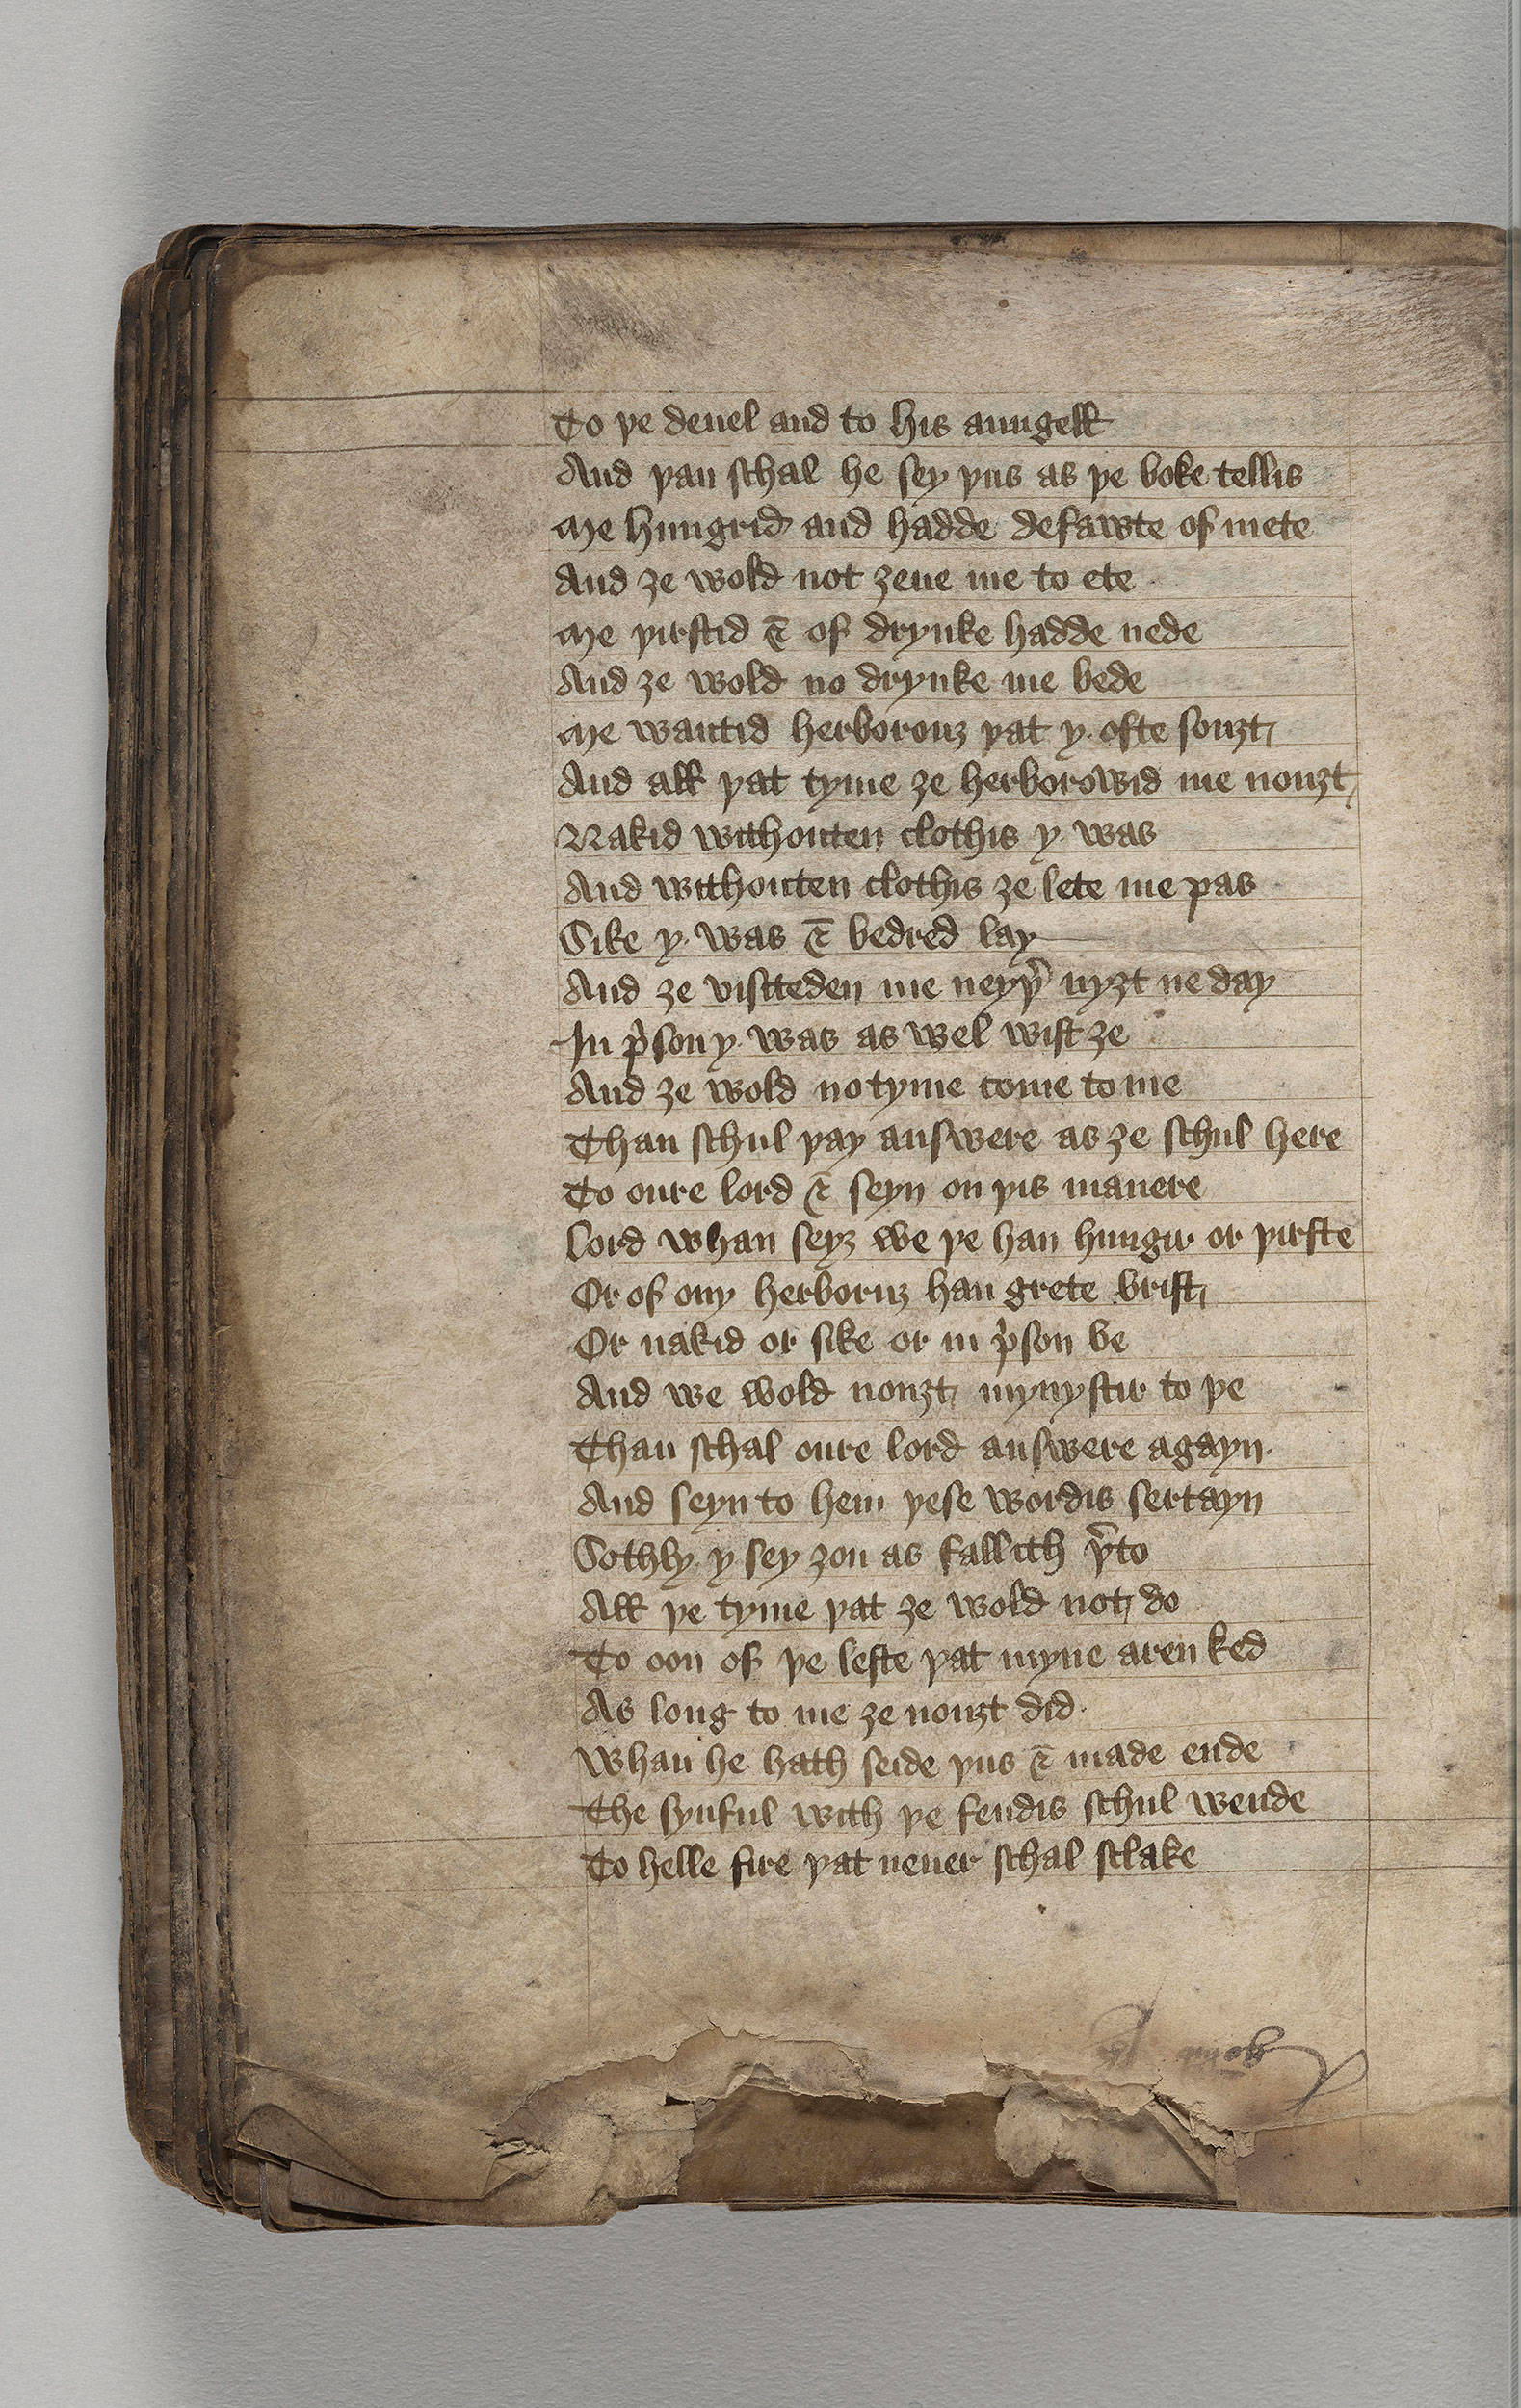 To þe deuel and to his aungell
And þan schal he sey þus as þe boke tellis
Me hungrid and hadde defawte of mete
And ȝe wold not ȝeue me to ete
Me þirstid & of drynke hadde nede
And ȝe wold no drynke me bede
Me wantid herborouȝ þat y ofte souȝt
And all þat tyme ȝe herborowid me nouȝt
Nakid withouten clothis y was
And withouten clothis ȝe lete me pas
Sike y was & bedred lay
And ȝe visiteden me neyþ̉ nyȝt ne day
In p̉son y was as wel wist ȝe
And ȝe wold no tyme come to me
Than schul þay answere as ȝe schul here
To oure lord & seyn on þis manere
Lord whan seyȝ we þe han hungir or þirste
Or of ony herboruȝ han grete brist
Or nakid or sike or in p̉son be
And we wold nouȝt mynystir to þe
Than schal oure lord answere agayn
And seyn to hem þese wordis sertayn
Sothly y sey ȝou as fallith þ̉to
All þe tyme þat ȝe wold not do
To oon of þe leste þat myne aren ked
As long to me ȝe nouȝt did
Whan he hath seide þus & made ende
The synful with þe fendis schul wende
To helle fire þat neuer schal sclake